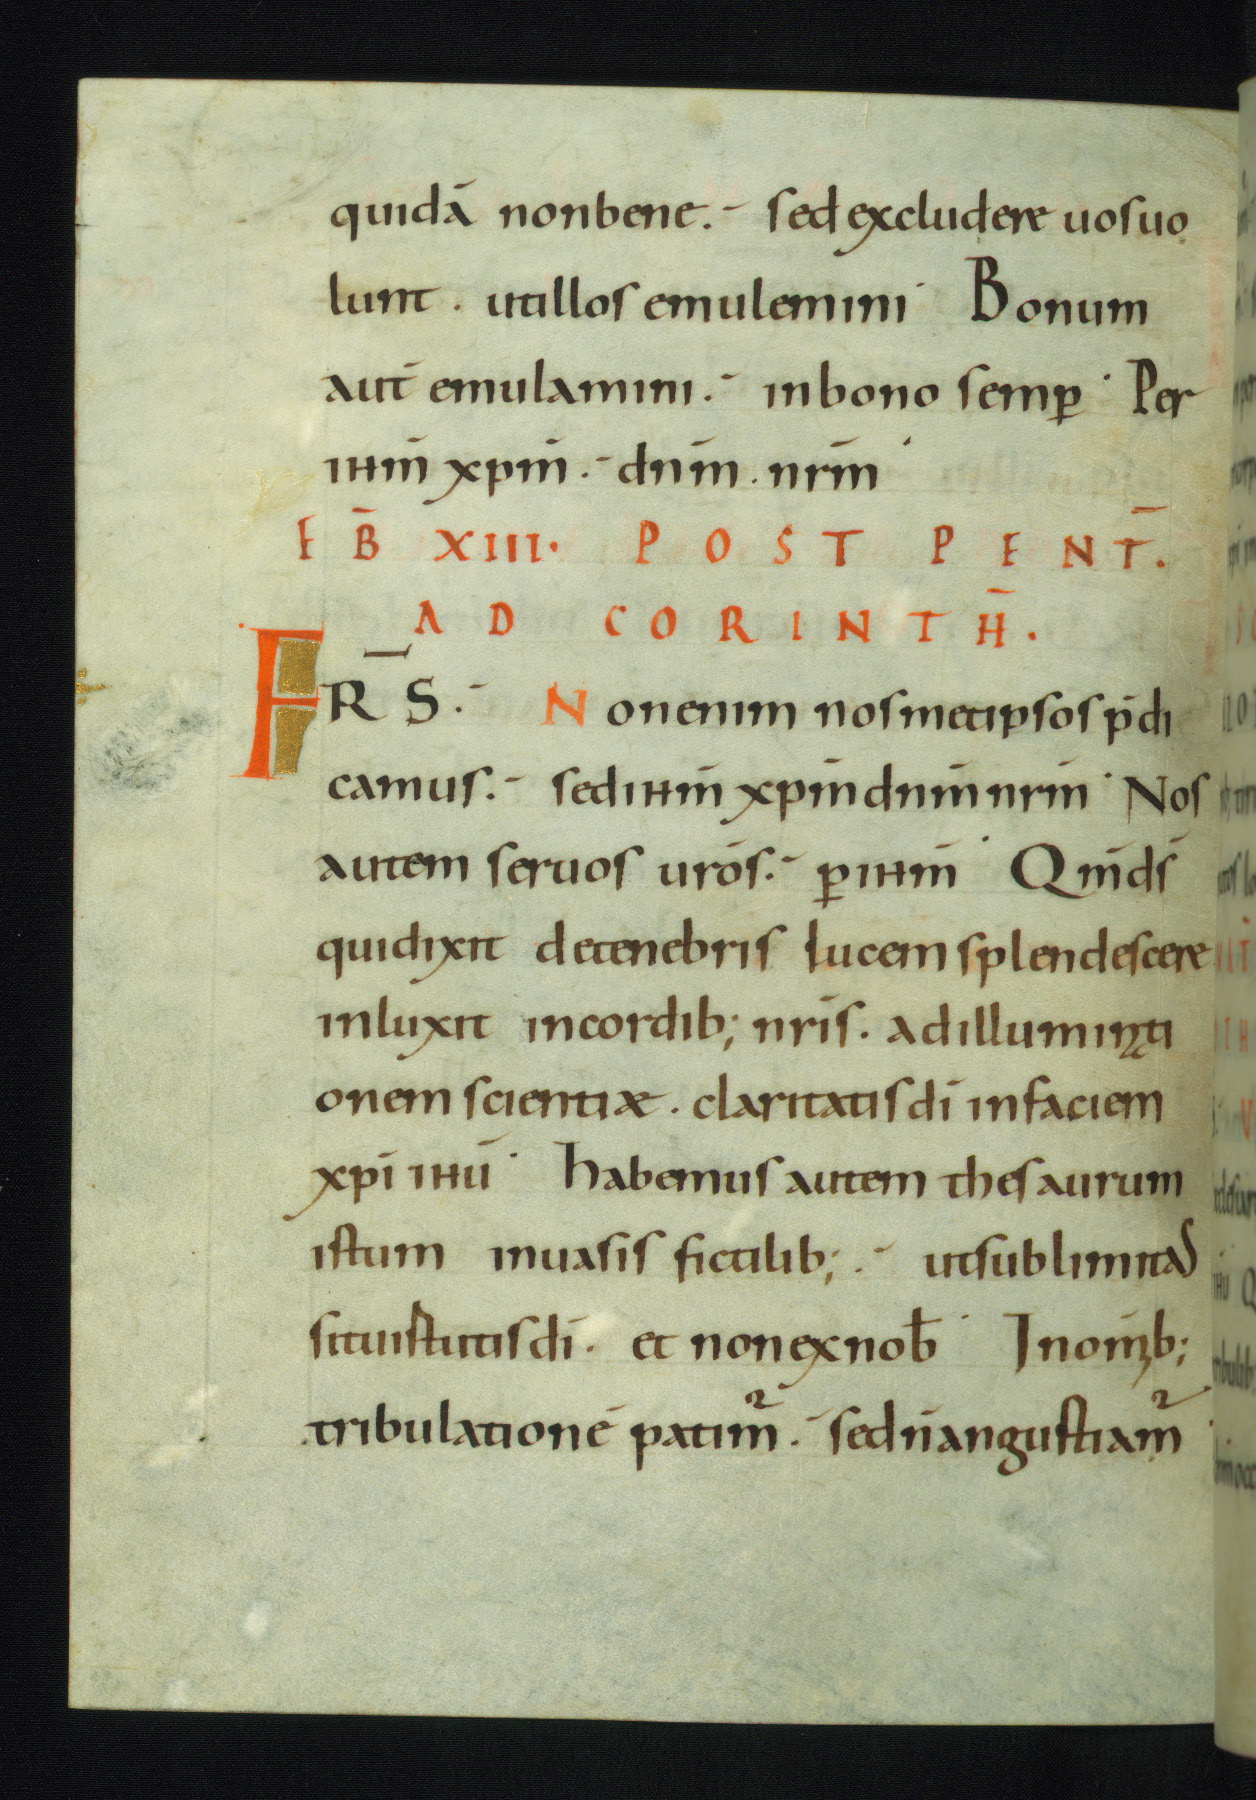 quidā non bene. sed excludere uos uo
lunt. ut illos emulemini Bonum
aut̄ emulamini. in bono semꝑ Per
ihm̄ xpm̄. dnm̄. nrm̄
F B̄ XIII. POST PENT̄.
AD CORINTH̄.
FR̄S. Non enim nosmetipsos p̄di
camus. sed ihm̄ xpm̄ dnm̄ nrm̄ Nos
autem seruos urōs. ꝑ ihm̄ Qm̄ ds̄
qui dixit de tenebris lucem splendescere
inluxit in cordib; nrīs. ad illuminati
onem scientiæ. claritatis dī in faciem
xpī ihū habemus autem thesaurum
istum in uasis fictilib;. ut sublimitas
sit uistutis dī. et non ex nob̄ In omīb;
tribulationē patim̄. sed n̄ angustiam̄